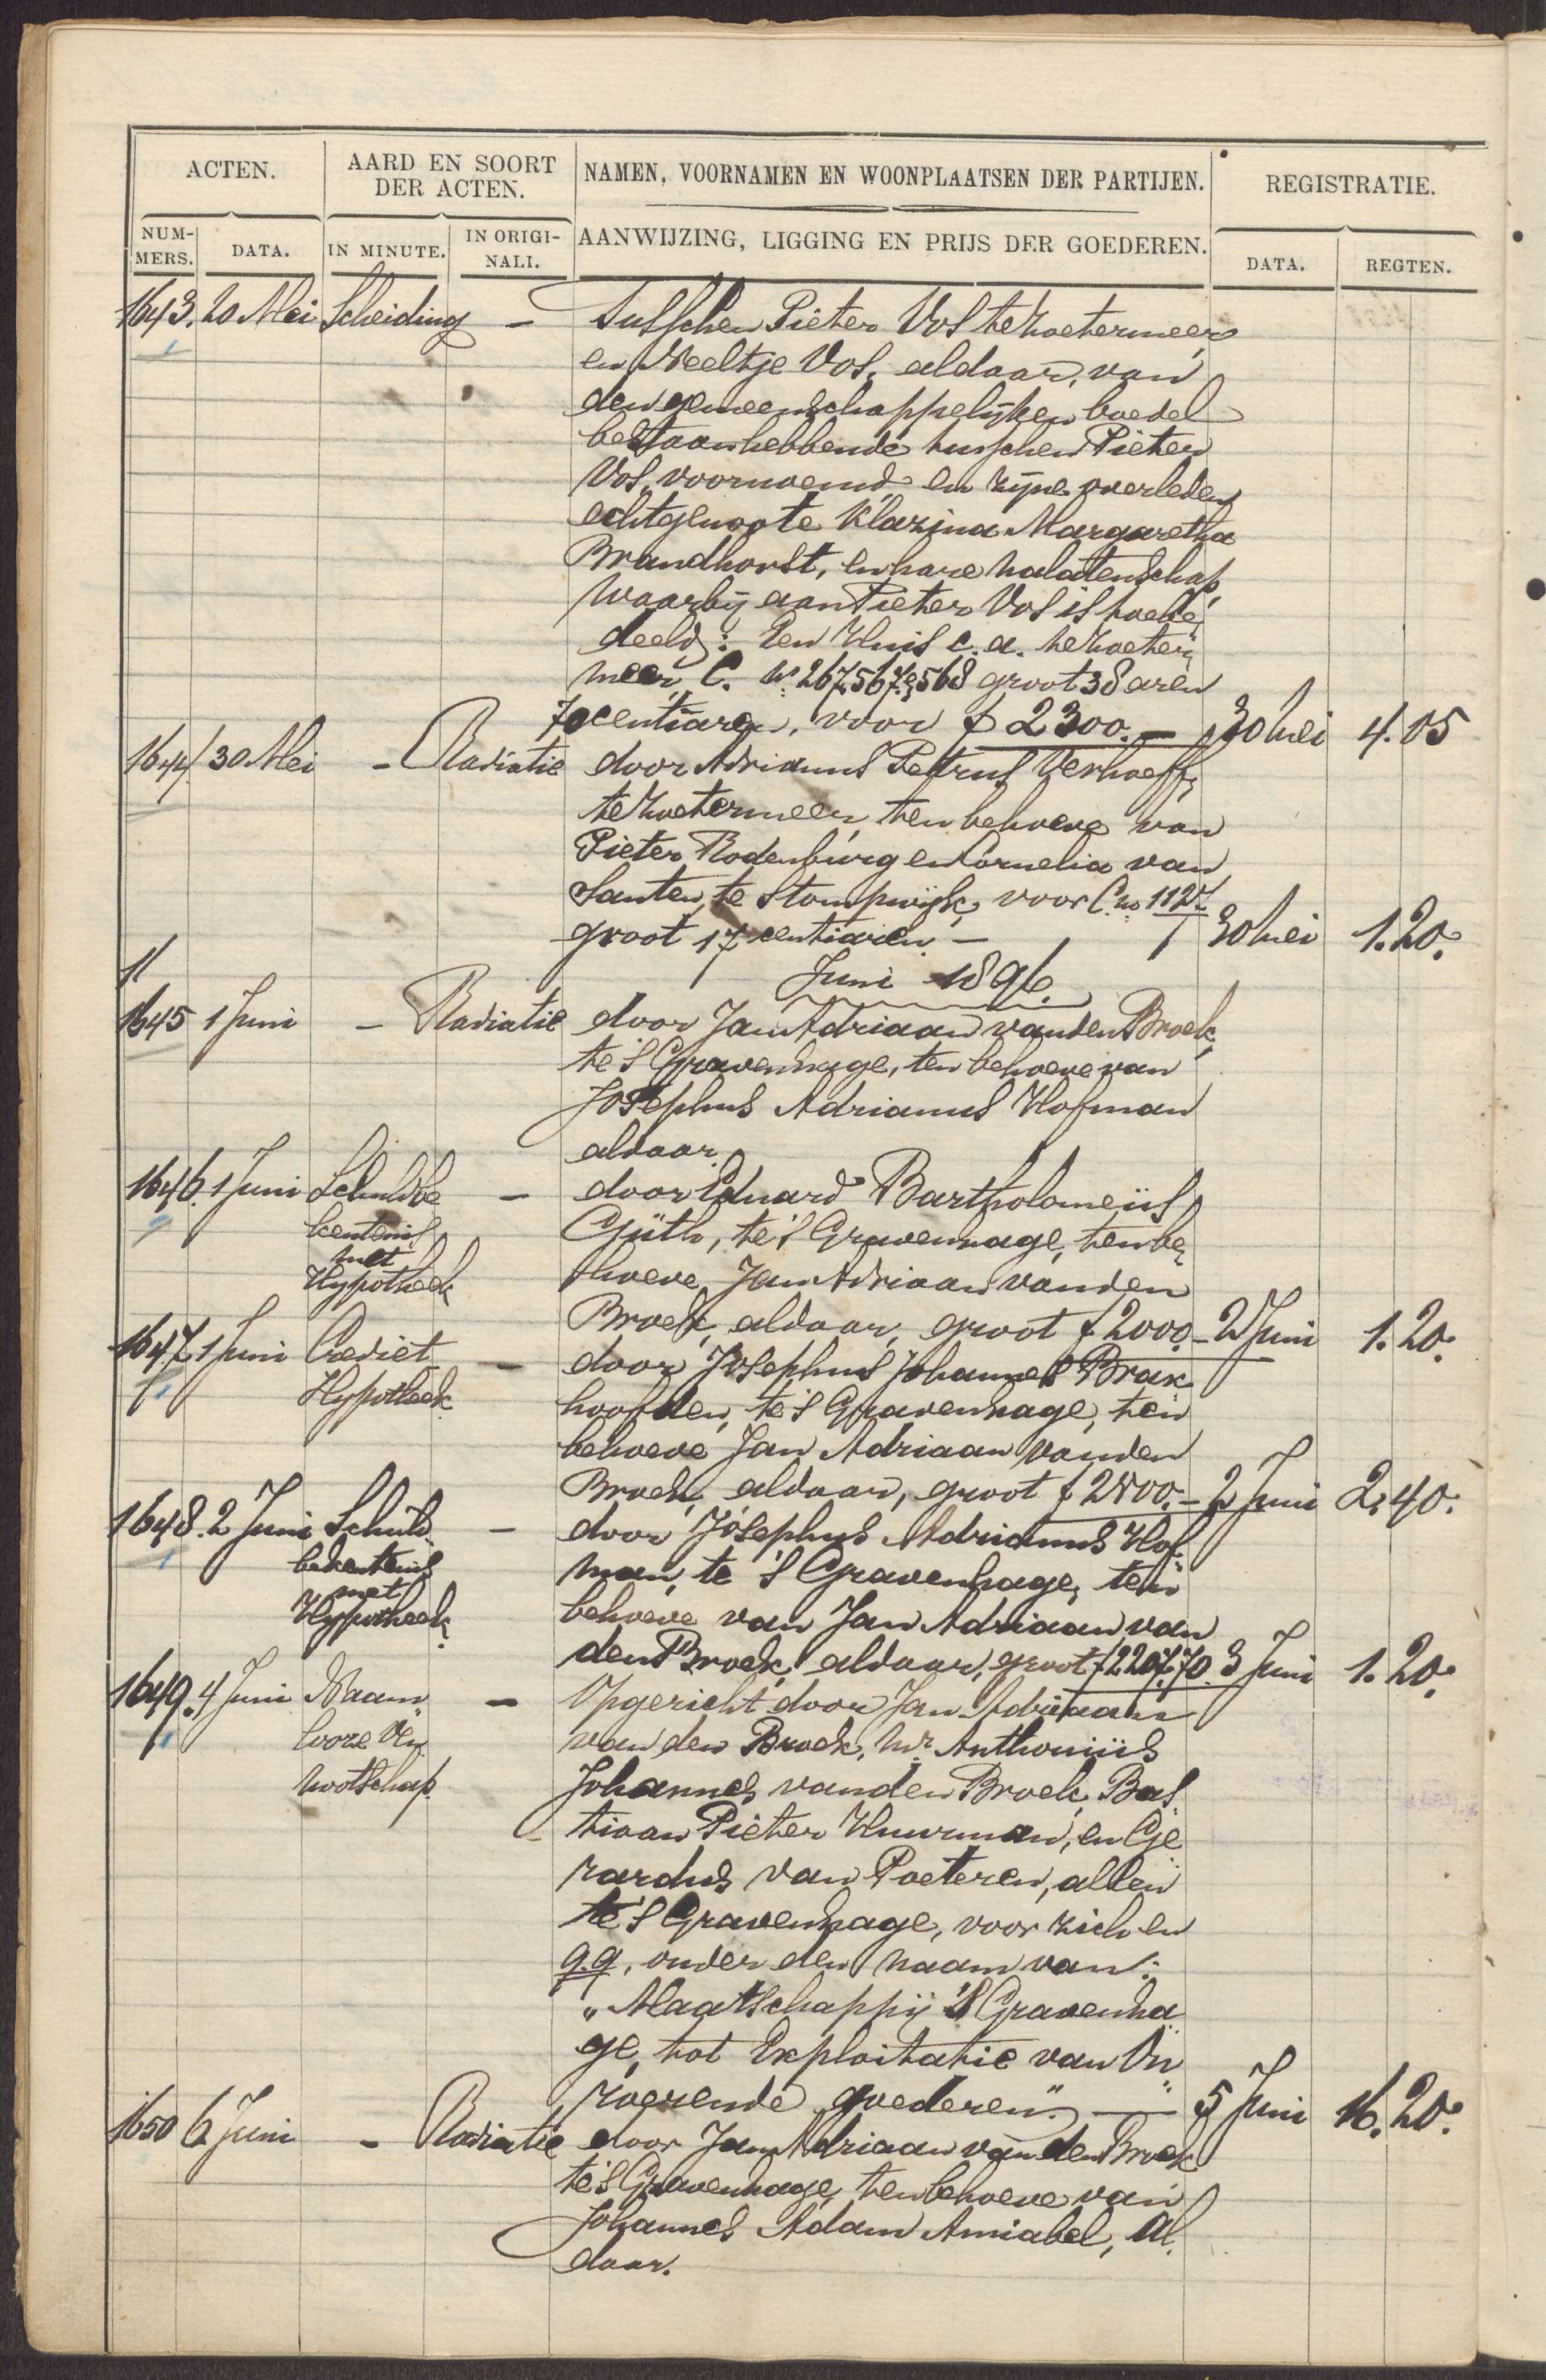 ACTEN.
AARD EN SOORT
DER ACTEN.
NAMEN, VOORNAMEN EN WOONPLAATSEN DER PARTIJEN.
REGISTRATIE.
NUM-
MERS.
DATA.
IN MINUTE.
IN ORIGI-
NALI.
AANWIJZING, LIGGING EN PRIJS DER GOEDEREN.
DATA.
REGTEN.
1643. 20 Mei Scheiding - Tusschen Pieter Vos te Zoetermeer
en Neeltje Vos, aldaar, van
den gemeenschappelijken boedel
bestaan hebbende tusschen Pieter
Vos, voornoemd en zijne overleden
echtgenoote Klazina Margaretha
Brandhorst, en hare nalatenschap,
waarbij aan Pieter Vos is toebe„
deeld: Een Huis c.a. te Zoeter„
meer, C. no 267, 567 & 568 groot 38 aren
70 centiaren, voor f 2300.- 30 Mei 4.05
1644 30 Mei - Radiatie door Adrianus Petrus Verhoeff,
te Zoetermeer, ten behoeve van
Pieter Rodenburg en Cornelia van
Santen, te Stompwijk, voor C. no 1127
groot 17 centiaren. - 30 Mei 1.20.
11
Juni 1896.
1645 1 Juni - Radiatie door Jan Adriaan van den Broek,
te 's Gravenhage, ten behoeve van
Josephus Adrianus Hofman
aldaar.
1646. 1 Juni Schuldbe - door Eduard Bartholomeüs
kentenis Güth, te 's Gravenhage, ten be„
met
Hypotheek hoeve Jan Adriaan van den
Broek, aldaar, groot f 2000.- 2 Juni 1.20.
1647. 1 Juni Crediet - door Josephus Johannes Brak
Hypotheek hoofden, te 's Gravenhage, ten
behoeve Jan Adriaan van den
Broek, aldaar, groot f 2500.- 2 Juni 2.40.
1648. 2 Juni Schuld - door Josephus Adrianus Hof
bekentenis man, te 's Gravenhage, ten
met
Hypotheek behoeve van Jan Adriaan van
den Broek, aldaar, groot f 2207.70. 3 Juni 1.20.
1649. 4 Juni Naam - Opgericht door Jan Adriaan
looze Ven van den Broek, Mr Anthoniüs
nootschap. Johannes van den Broek, Bas
tiaan Pieter Huurman, en Ge
rardus van Poeteren, allen
te 's Gravenhage, voor zich en
q.q., onder den naam van:
„Maatschappij 's Gravenha
ge, tot Exploitatie van On
roerende goederen". - 5 Juni 16.20.
1650 6 Juni - Radiatie door Jan Adriaan van den Broek
te 's Gravenhage, ten behoeve van
Johannes Adam Amiabel, al
daar.